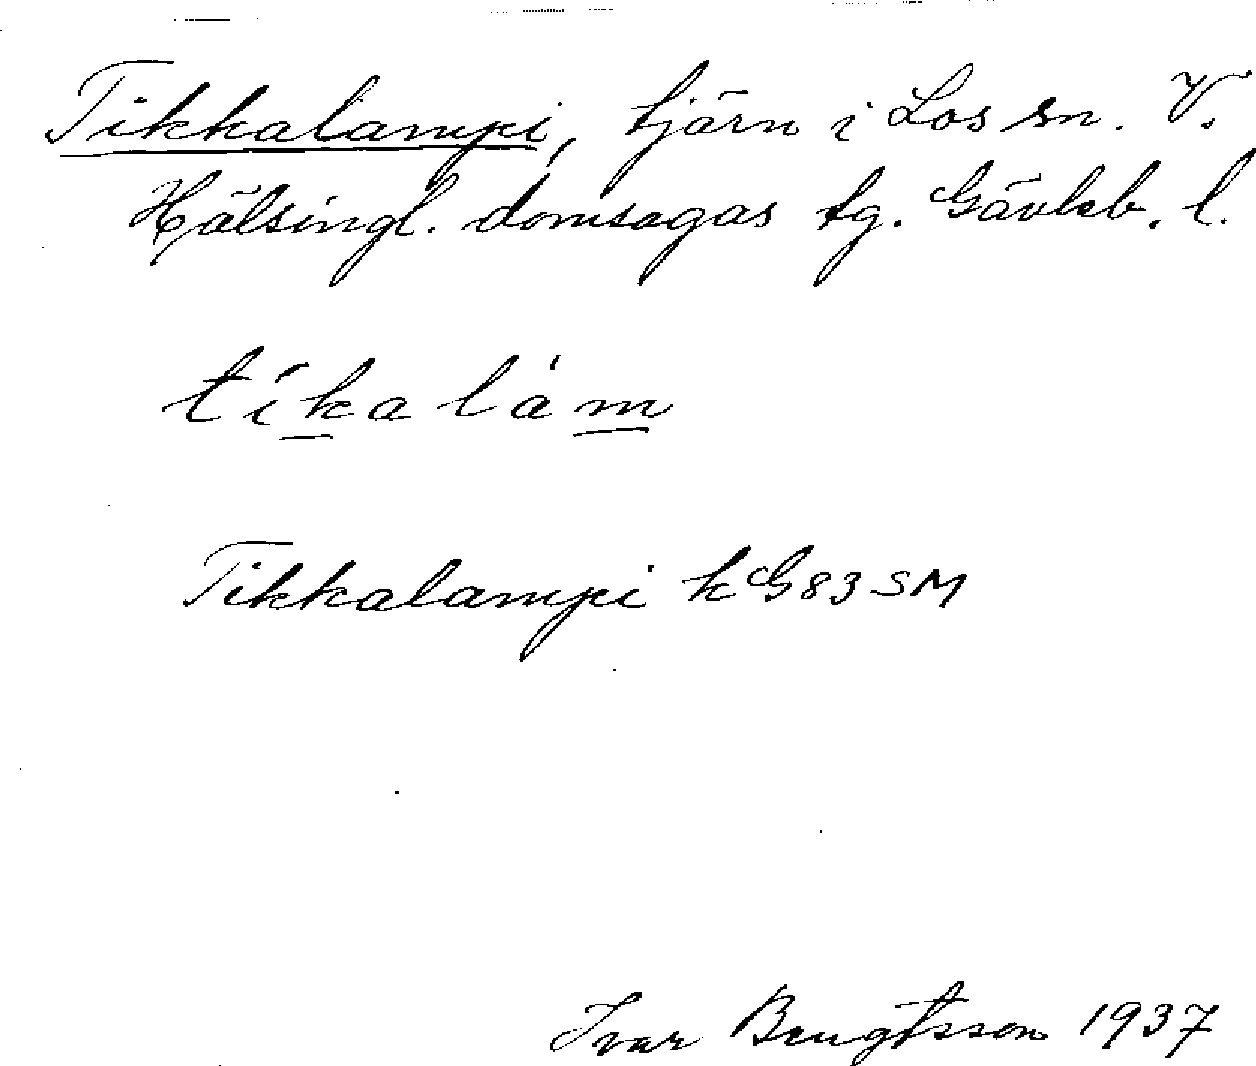 Tikkalampi, tjärn i Los sn. V.
Hälsingl. domsagas tg. Gävleb. l.
tíkalám
Tikkalampi kG83SM
Ivar Bengtsson 1937